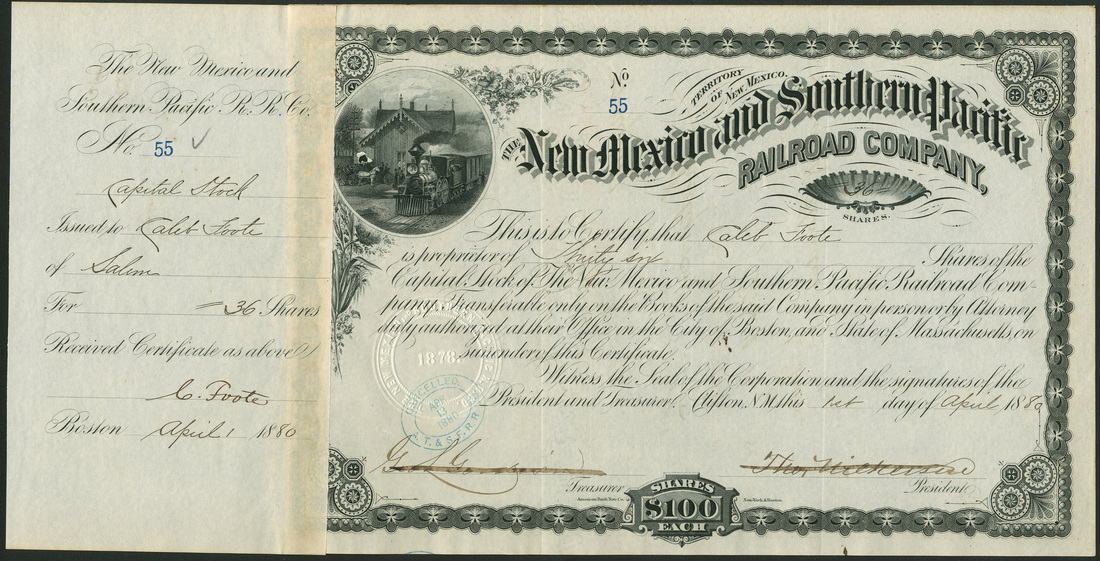 The New Mexico and
Southern Pacific R.R. Co.
No. 55
Capital Stock
Issued to Caleb Foote
of Salem
For =36 Shares
Received Certificate as above
C. Foote
Boston April 1 1880
No
55
TERRITORY
OF NEW MEXICO.
THE New Mexico and Southern Pacific
RAILROAD COMPANY,
36
SHARES.
This is to Certify, that Caleb Foote
is proprietor of Thirty six Shares of the
Capital Stock of The New Mexico and Southern Pacific Railroad Com-
pany, Transferable only on the Books of the said Company in person or by Attorney
duly authorized at their Office in the City of Boston, and State of Massachusetts, on
surrender of this Certificate.
Witness the Seal of the Corporation and the signatures of the
President and Treasurer. Clifton, N.M. this 1st day of April 1880
1878.
CANCELLED.
APR
13
1880
A.T. & S.F. R.R.
Thos. Nickerson
Treasurer
President
American Bank Note Co. New York & Boston.
SHARES
$100
EACH